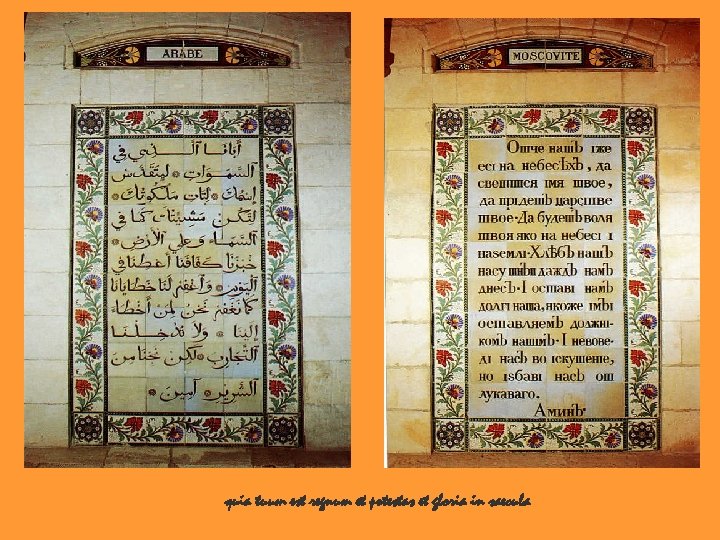 ARABE
أَبَانَا الَّـــذِي فِي
السَّمَـوَاتِ * لِيَتَقَدَّسْ
إِسْمُكَ * لِتَأْتِ مَلَكُوتُكَ *
لِتَكُنْ مَشِيئَتُكَ كَمَا فِي
السَّمَاءِ وَعَلَى الأَرْضِ *
خُبْزَنَا كَفَافَنَا أَعْطِنَا فِي
الْيَوْمِ * وَاغْفِرْ لَنَا خَطَايَانَا
كَمَا نَغْفِرُ نَحْنُ لِمَنْ أَخْطَأَ
إِلَيْنَا * وَلَا تُدْخِــلْنَــا
التَّجَارِبَ * لٰكِنْ نَجِّنَا مِنَ
الشِّرِّيرِ * آمِينَ *
MOSCOVITE
Отче нашЪ іже
есі на небесѢхЪ, да
святится імя твое,
да пріідетЪ царствие
твое·Да будетЪ воля
твоя яко на небесі і
на землі·ХлѢбЪ нашЪ
насущныи даждЬ намЪ
днесЬ·І оставі намЪ
долгі наша, якоже імЫ
оставляемЪ должні-
комЪ нашимЪ·І невове-
ді насЪ во іскушеніе,
но ізбаві насЪ от
лукаваго.
АминЬ·
quia tuum est regnum et potestas et gloria in saecula